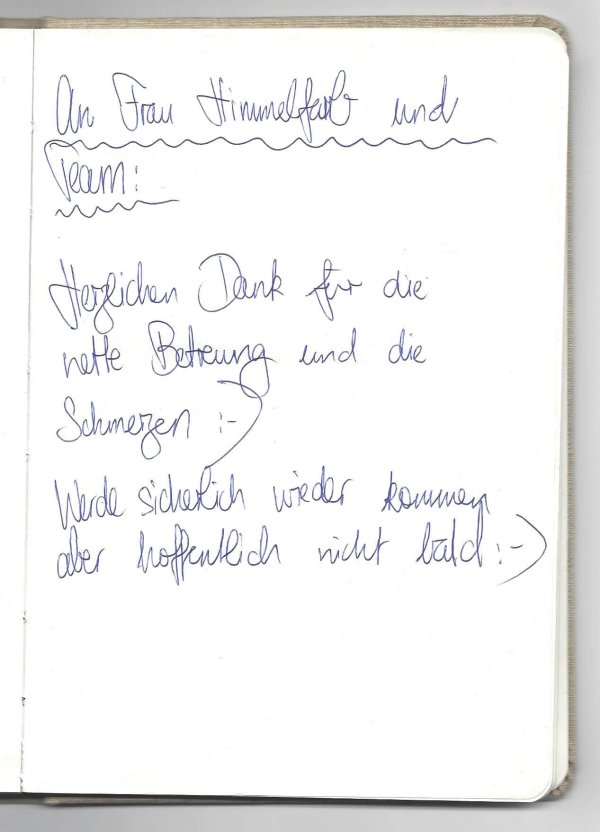 An Frau Himmelfarb und
Team:
Herzlichen Dank für die
nette Betreuung und die
Schmerzen :-)
Werde sicherlich wieder kommen
aber hoffentlich nicht bald :-)